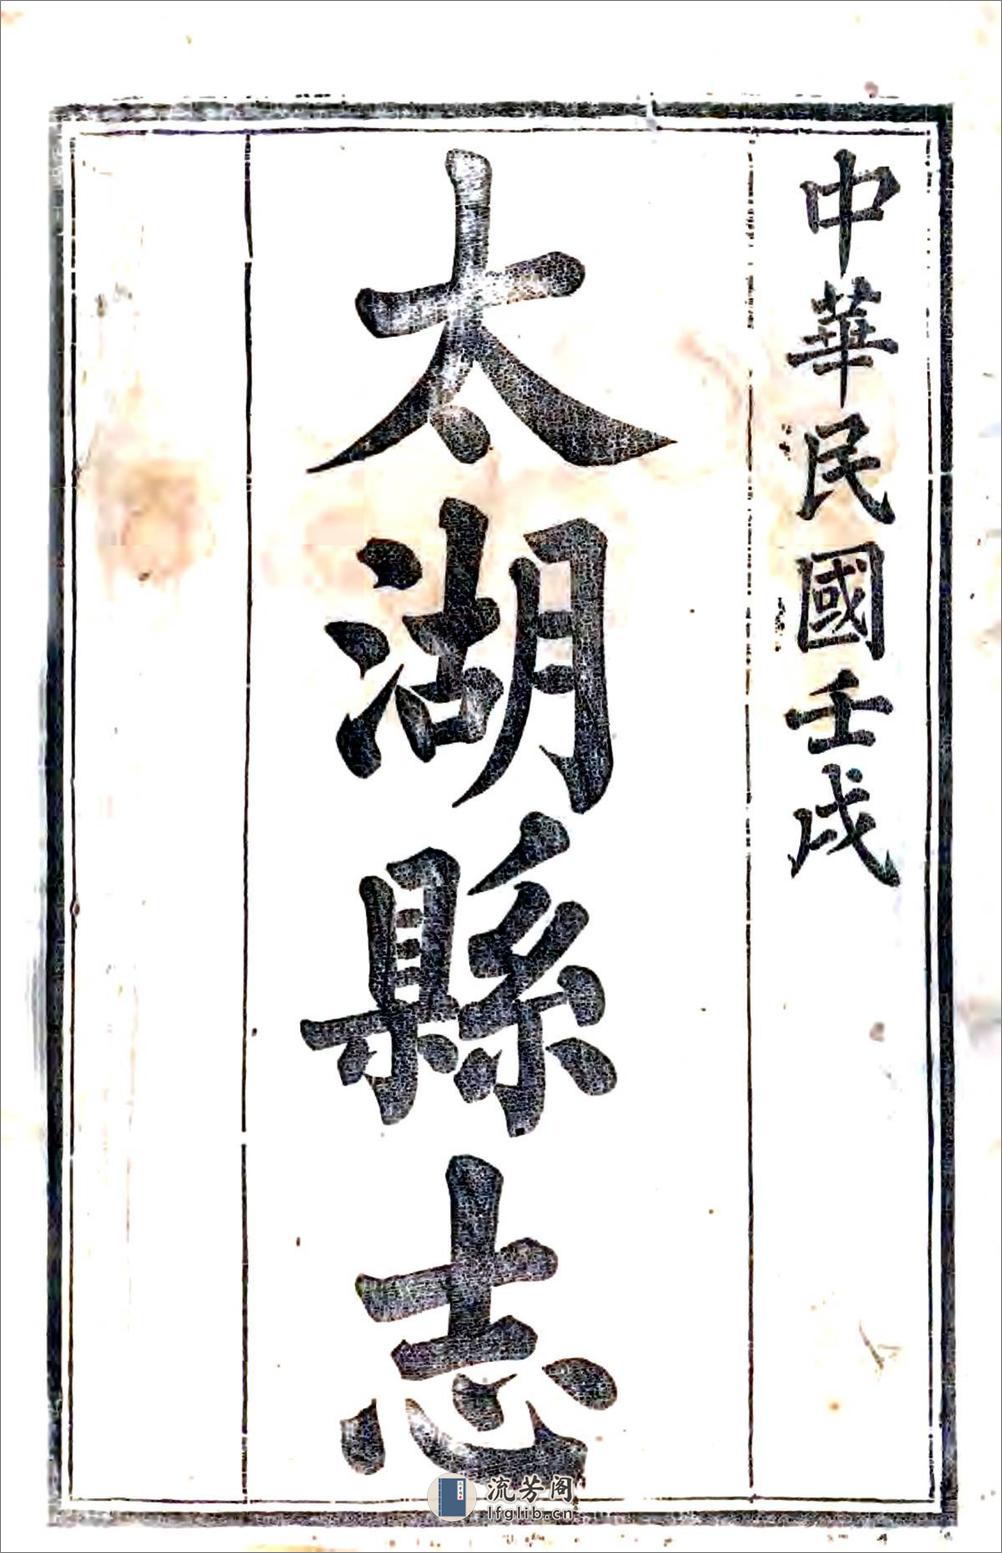 中華民國壬戌
太湖縣志
流芳阁
lfglib.cn